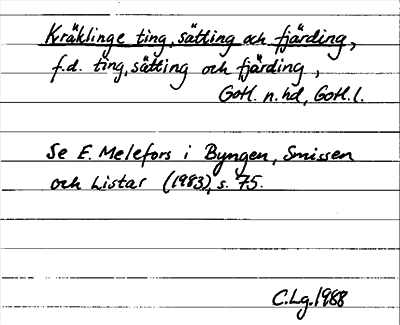 Kräklinge ting, sätting och fjärding,
f.d. ting, sätting och fjärding,
Gotl. n. hd, Gotl. l.
Se E. Melefors i Byngen, Smissen
och Listar (1983), s. 75.
C.Lg. 1988